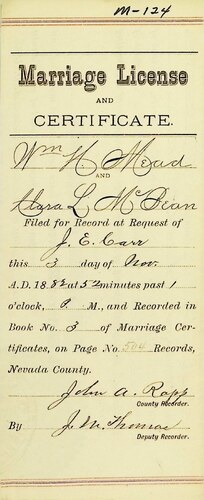 M-124
Marriage License
AND
CERTIFICATE.
Wm H Mead
AND
Clara L McBean
Filed for Record at Request of
J. E. Carr
this 3 day of Nov.
A.D. 18 88 at 52 minutes past 1
o'clock, P. M., and Recorded in
Book No. 3 of Marriage Cer-
tificates, on Page No. 504 Records,
Nevada County.
John A. Rapp
County Recorder.
By J. M. Thomas
Deputy Recorder.